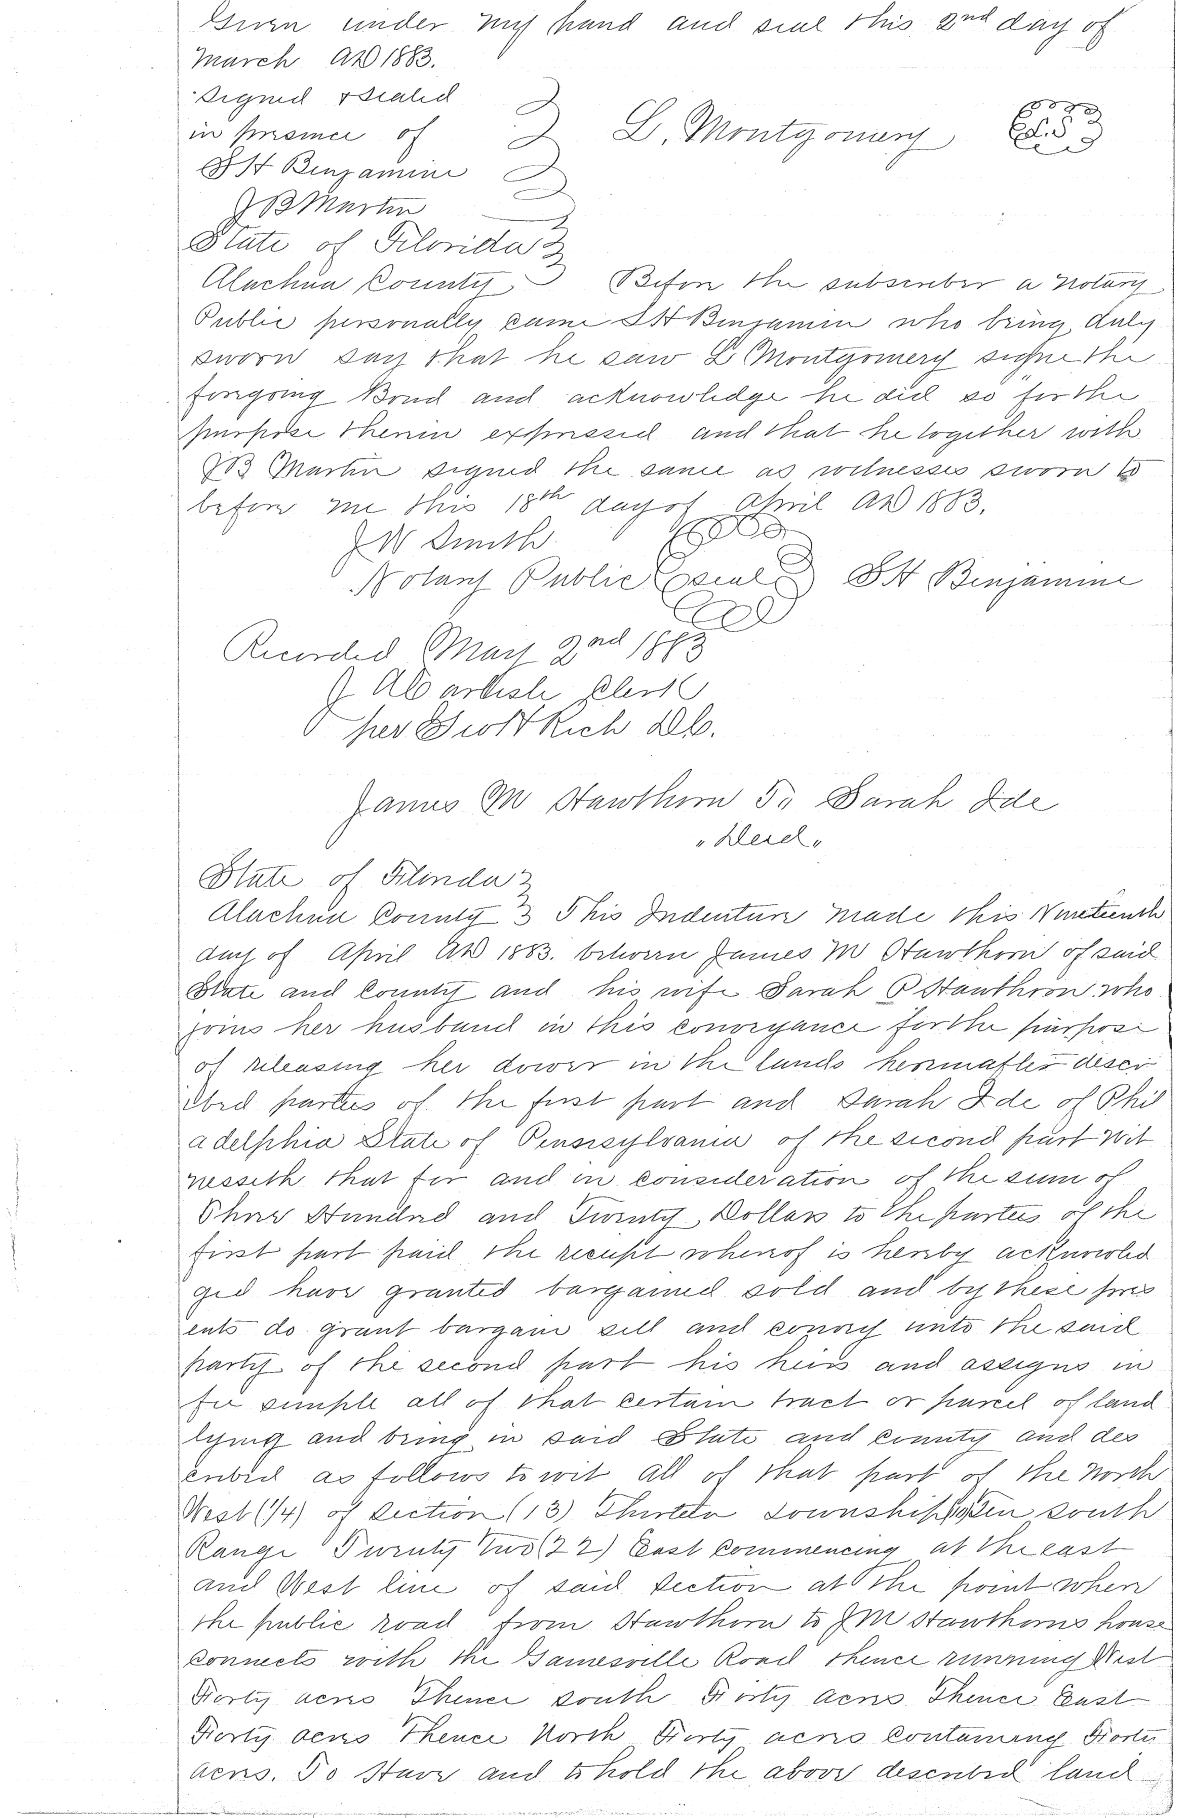 Given under my hand and seal this 2nd day of
March AD 1883.
Signed & sealed
in presence of
L. Montgomery
L.S
S H Benjamine
J B Martin
State of Florida
Alachua County Before the subscriber a Notary
Public personally came S H Benjamin who being duly
sworn say that he saw L Montgomery signe the
foregoing Bond and acknowledge he did so for the
purpose therein expressed and that he together with
J B Martin signed the same as witnesses sworn to
before me this 18th day of April AD 1883.
J W Smith
Notary Public seal S H Benjamine
Recorded May 2nd 1883
J A Carlisle Clerk
per Rich DC.
James M Hawthorn To Sarah Ide
"Deed"
State of Florida
Alachua County This Indenture made this Nineteenth
day of April AD 1883. between James M Hawthorn of said
State and County and his wife Sarah P Hawthron who
joins her husband in this conveyance for the purpose
of releasing her dower in the lands hereinafter descr
ibed parties of the first part and Sarah Ide of Phil
adelphia State of Pennsylvania of the second part Wit
nesseth that for and in consideration of the sum of
Three Hundred and Twenty Dollars to the parties of the
first part paid the receipt whereof is hereby acknowled
ged have granted bargained sold and by these pres
ents do grant bargain sell and convey unto the said
party of the second part his heirs and assigns in
fee simple all of that certain tract or parcel of land
lying and being in said State and county and des
cribed as follows to wit all of that part of the North
West (1/4) of Section (13) Thirteen Township (10) Ten south
Range Twenty Two (22) East Commencing at the east
and West line of said Section at the point where
the public road from Hawthorn to J M Hawthorns house
connects with the Gainesville Road thence running West
Forty acres Thence south Forty acres Thence East
Forty acres Thence North Forty acres Containing Forty
acres. To Have and to hold the above described land